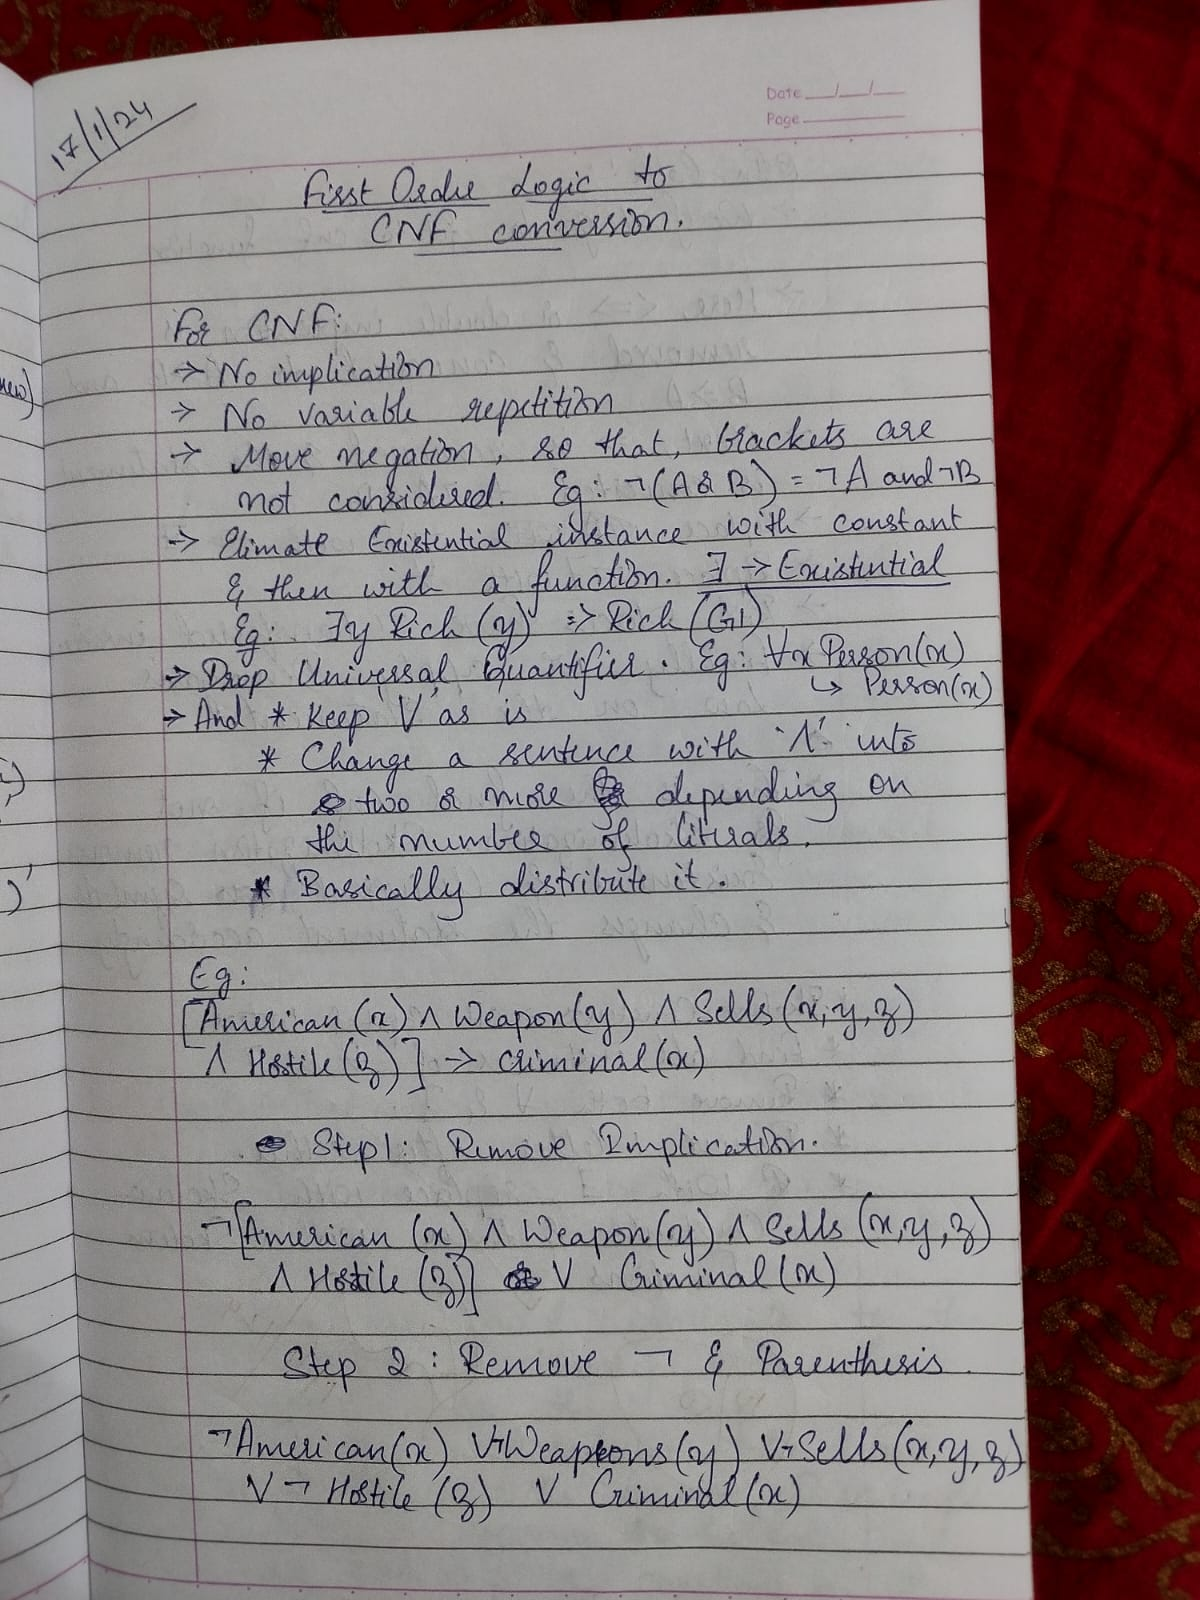 17/1/24
Date __/__/__
Page
First Order Logic to
CNF conversion.
For CNF:
→ No implication
→ No variable repetition
→ Move negation, so that, brackets are
not considered. Eg: ¬(A & B) = ¬A and ¬B
→ Elimate Existential instance with constant
& then with a function. ∃ → Existential
Eg: ∃y Rich (y) ⇒ Rich (G1)
→ Drop Universal Quantifier. Eg: ∀x Person(x)
↳ Person(x)
→ And * Keep 'V' as is
* Change a sentence with 'Λ' into
two or more depending on
the number of literals.
* Basically distribute it.
Eg:
[American (x) ∧ Weapon(y) ∧ Sells (x,y,z)
∧ Hostile (z)] → criminal(x)
Step1: Remove Implication.
¬[American (x) ∧ Weapon(y) ∧ Sells (x,y,z)
∧ Hostile (z)] V Criminal (x)
Step 2 : Remove ¬ & Parenthesis
¬American(x) V¬Weapons(y) V¬Sells(x,y,z)
V ¬ Hostile (z) V Criminal (x)
new)
)
)'